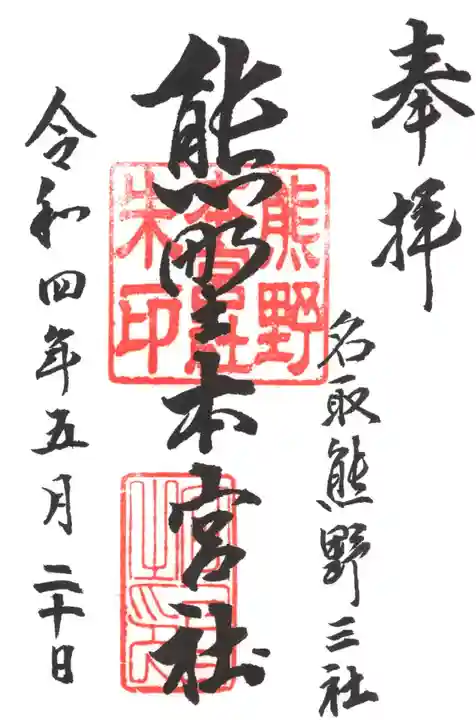 奉拝
名取熊野三社
熊野本宮社
熊野
朱印
令和四年五月二十日